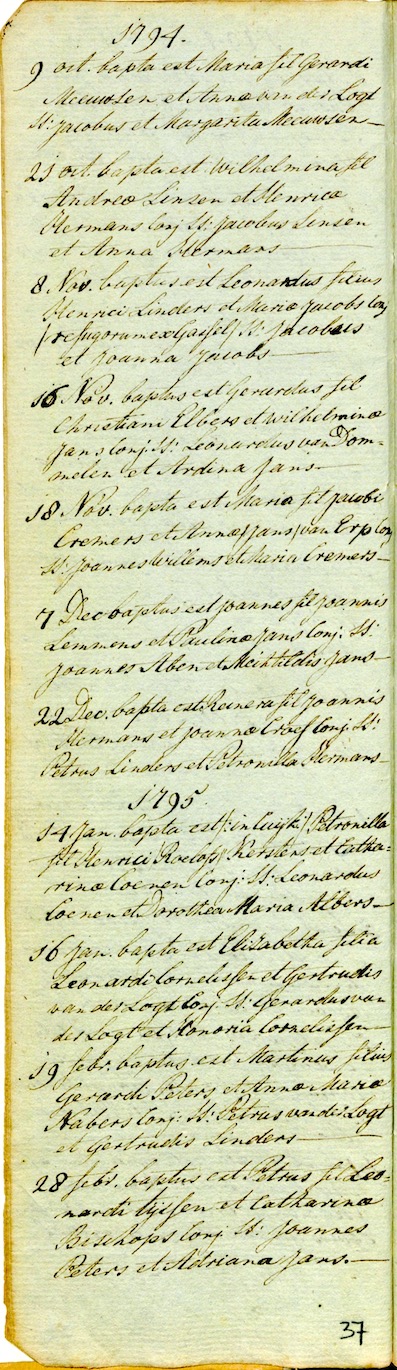 1794.
9 oct. bapta est Maria fil Gerardi
Meeuwsen et Annæ van der Logt
St: Jacobus et Margarita Meeuwsen
21 oct. bapta est Wilhelmina fil
Andreæ Linsen et Henricæ
Hermans Conj St: Jacobus Linsen
et Anna Hermans
8 Nov. baptus est Leonardus filius
Henrici Linders et Mariæ Jacobs Conj
/refugorum ex Gassel/ St: Jacobus
et Joanna Jacobs
16 Nov. baptus est Gerardus fil
Christiani Elbers et Wilhelminæ
Jans Conj. St: Leonardus van Dom=
melen et Ardina Jans
18 Nov. bapta est Maria fil Jacobi
Cremers et Annæ /Jans/ van Erp Conj
St: Joannes Willems et Maria Cremers
7 Dec baptus est Joannes fil Joannis
Lemmens et Paulinæ Jans Conj: St:
Joannes Aben et Mechtildis Jans
22 Dec. bapta est Reinera fil Joannis
Hermans et Joannæ Croef Conj. St:
Petrus Linders et Petronilla Hermans
1795.
14 Jan. bapta est /: in Cuijk:/ Petronilla
fil Henrici /Roelofs/ Kerstens et Catha=
rinæ Coenen Conj: St: Leonardus
Coenen et Dorothea Maria Albers
16 Jan. bapta est Elizabetha filia
Leonardi Cornelissen et Gertrudis
van der Logt Conj. St: Gerardus van
der Logt et Honoria Cornelissen
19 febr. baptus est Martinus filius
Gerardi Peters et Annæ Mariæ
Nabers Conj: St: Petrus van der Logt
et Gertrudis Linders
28 febr. baptus est Petrus fil Leo=
nardi Tijssen et Catharinæ
Bisschops Conj St: Joannes
Peters et Adriana Jans.
37